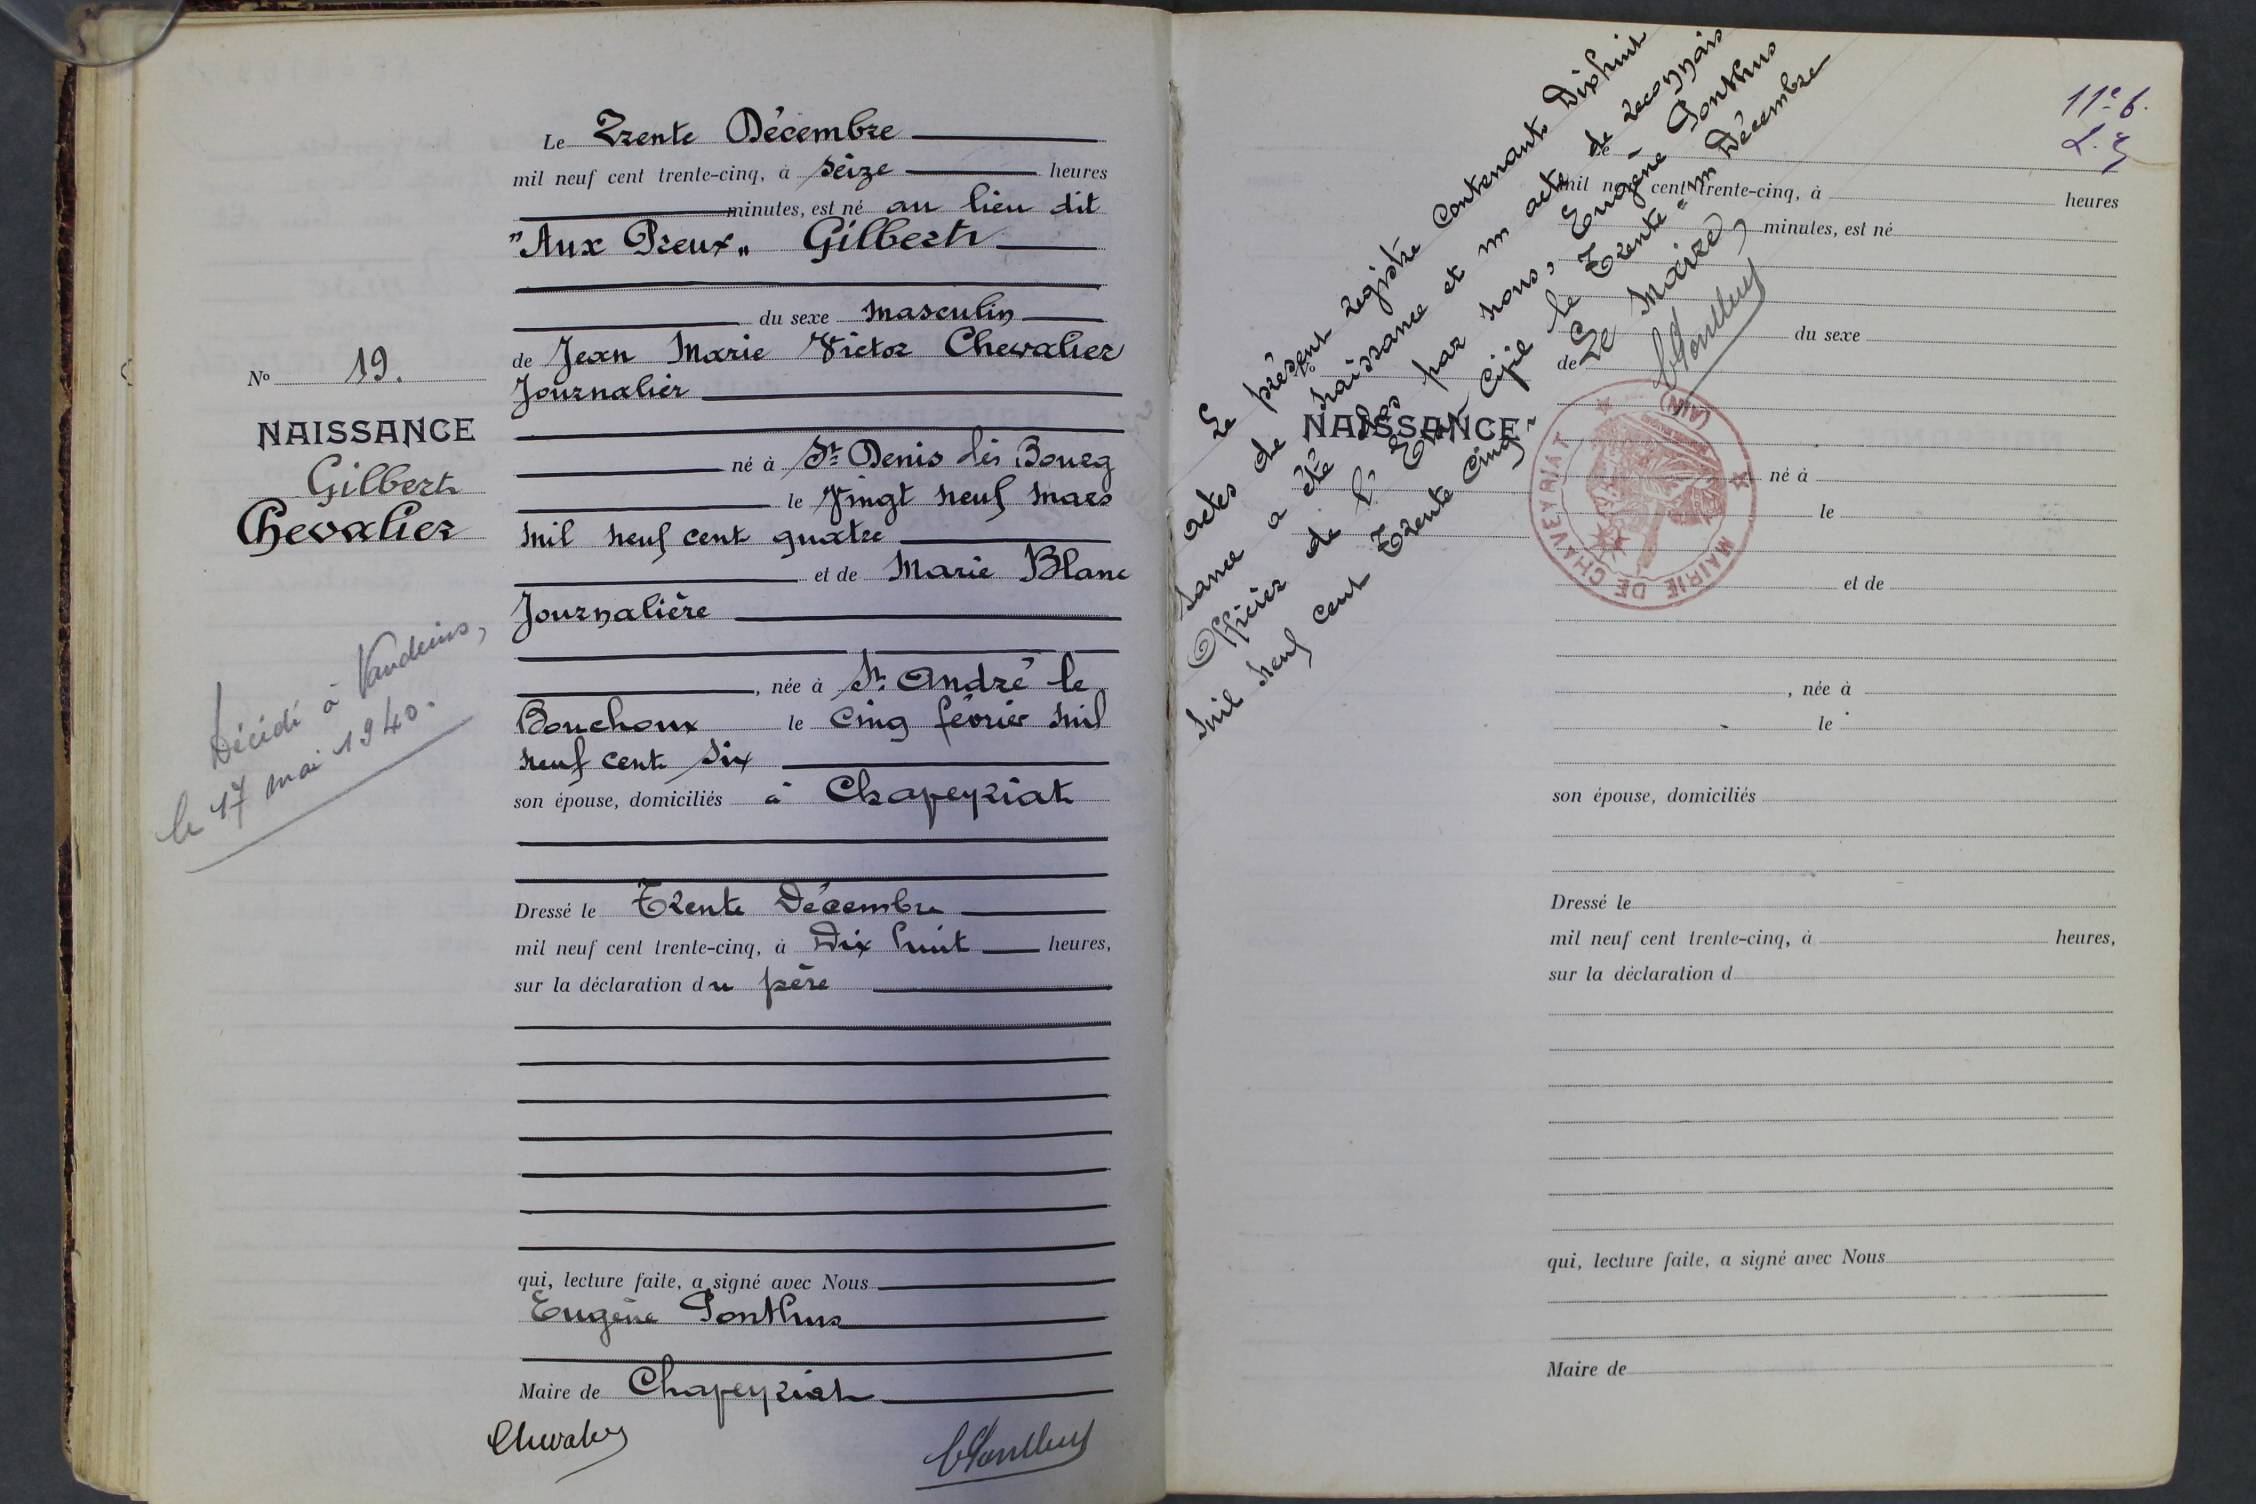 Le Trente Décembre
mil neuf cent trente-cinq, à seize heures
minutes, est né au lieu dit
"Aux Preux" Gilbert
du sexe masculin
de Jean Marie Victor Chevalier
Journalier
né à St Denis lès Bourg
le Vingt neuf mars
mil neuf cent quatre
et de Marie Blanc
Journalière
, née à St André le
Bouchoux le cinq février mil
neuf cent six
son épouse, domiciliés à Chaveyriat
Dressé le Trente Décembre
mil neuf cent trente-cinq, à Dix huit heures,
sur la déclaration du père
qui, lecture faite, a signé avec Nous
Eugène Ponthus
Maire de Chaveyriat
Chevalier
EPonthus
No 19.
NAISSANCE
Gilbert
Chevalier
Décédé à Vandeins,
le 17 mai 1940.
Le présent registre contenant Dixhuit
actes de naissance et un acte de reconnais
sance a été clos par nous, Eugène Ponthus
Officier de l'Etat Civil le Trente-un Décembre
mil neuf cent Trente Cinq-
Le Maire,
EPonthus
MAIRIE DE CHAVEYRIAT
(AIN)
11e 6.
NAISSANCE
Le
mil neuf cent trente-cinq, à heures
minutes, est né
du sexe
de
né à
le
et de
, née à
le
son épouse, domiciliés
Dressé le
mil neuf cent trente-cinq, à heures,
sur la déclaration d
qui, lecture faite, a signé avec Nous
Maire de